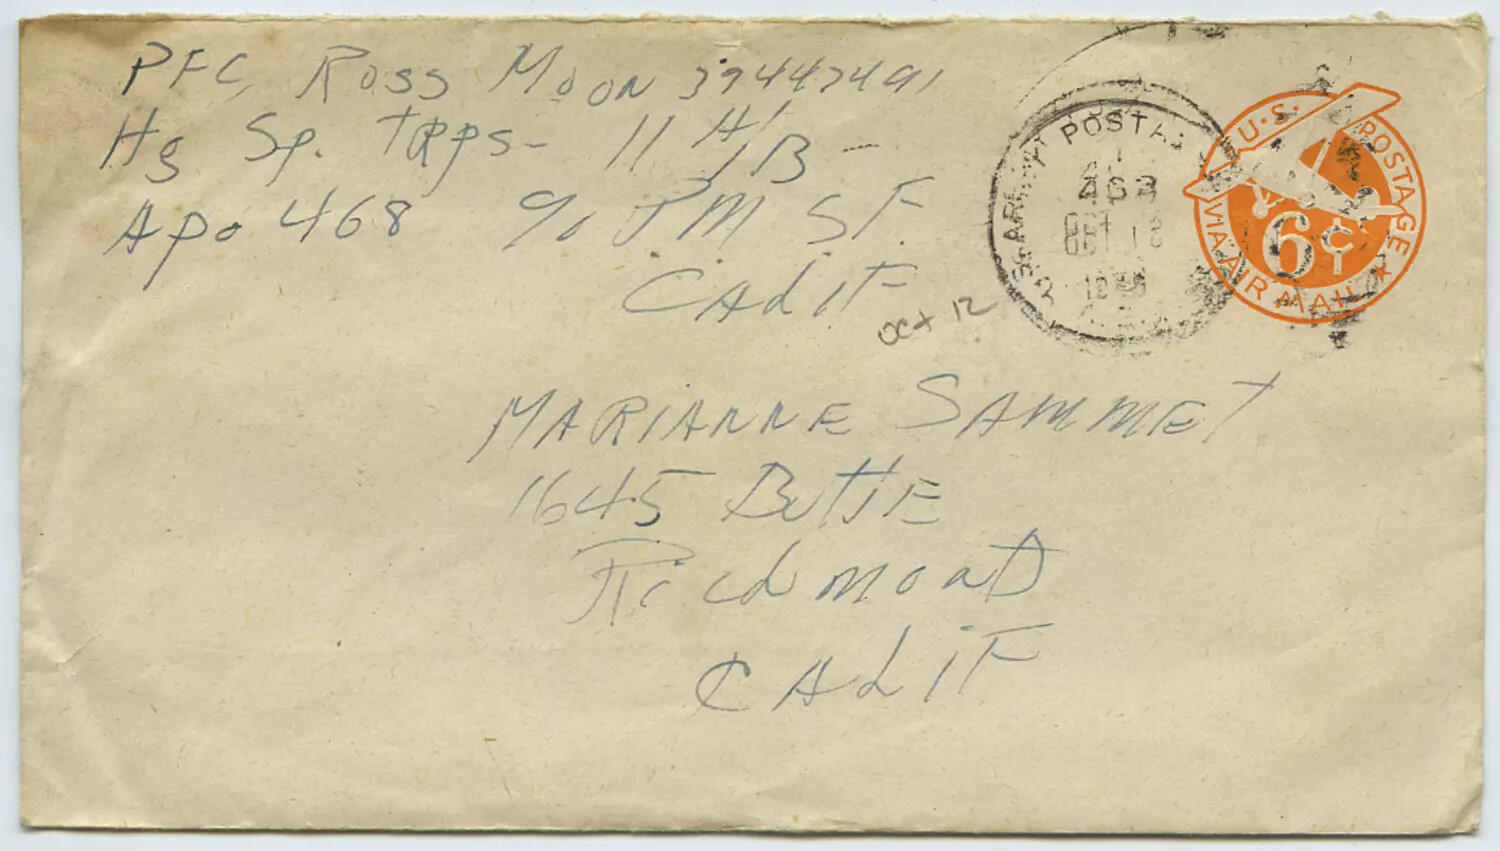 PFC Ross Moon 39447491
Hq Sp. Trps- 11 A/B -
Apo 468 % P.M. S.F.
CALIF
Oct 12
U.S. POSTAGE
VIA AIR MAIL
6¢
U.S. ARMY POSTAL
463
OCT 13
MARIANNE SAMMET
1645 ButtE
RedmonD
CALIF